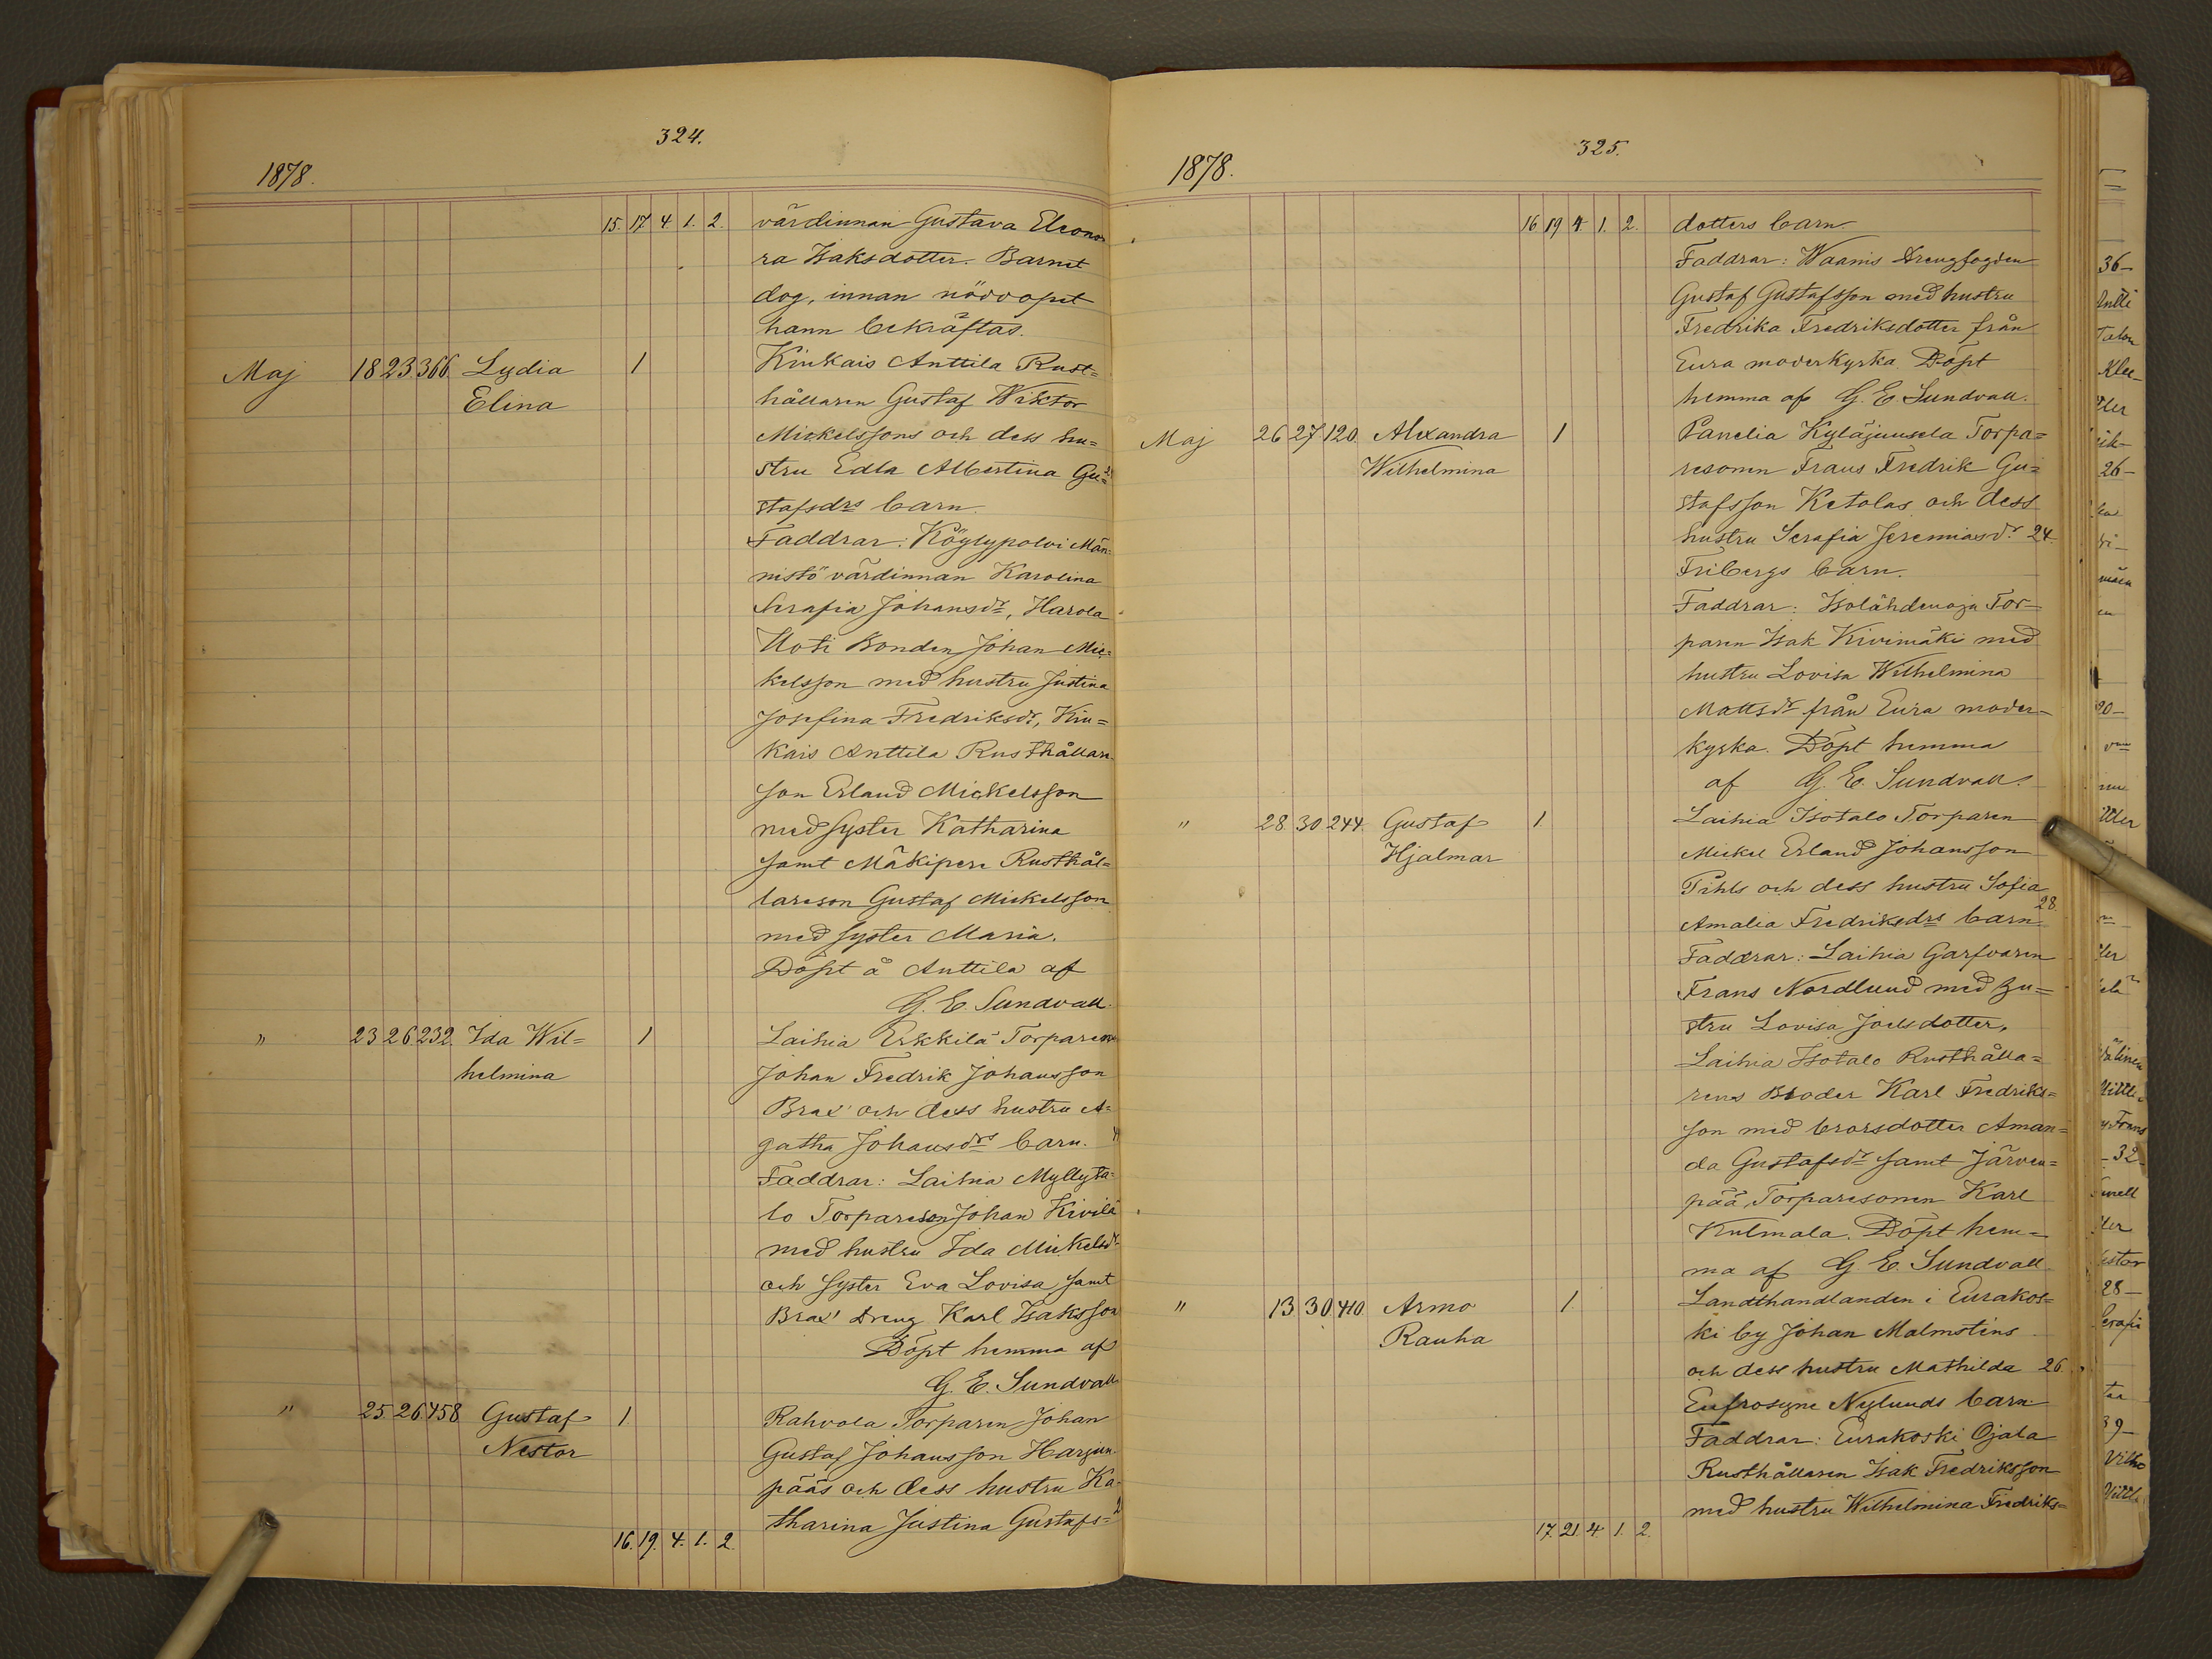 324.
1878.
15. 17. 4. 1. 2. värdinnan Gustava Eleono
ra Isaksdotter. Barnet
dog, innan nöddopet
hann bekräftas.
Maj 18 23 366. Lydia 1 Kiukais Anttila Rust=
Elina hållaren Gustaf Wiktor
Mickelssons och dess hu=
stru Edla Albertina Gu=
stafsdrs barn.
Faddrar: Köylypolvi Män=
nistö värdinnan Karolina
Serafia Johansdr, Harola
Uoti Bonden Johan Mic=
kelsson med hustru Justina
Josefina Fredriksdr, Kiu=
kais Anttila Rusthållare
son Erland Mickelsson
med syster Katharina
samt Mäkiperе Rusthål=
lareson Gustaf Mickelsson
med syster Maria.
Döpt å Anttila af
G. E. Sundvall.
" 23 26 232. Ida Wil= 1 Laihia Erkkilä Torparen
helmina Johan Fredrik Johansson
Brax' och dess hustru A=
gatha Johansdrs barn.
Faddrar: Laihia Myllyta=
lo Torpareson Johan Kivilä
med hustru Ida Mickelsdr
och syster Eva Lovisa samt
Brax' Dreng Karl Isaksson
Döpt hemma af
G. E. Sundvall
" 25 26 458 Gustaf 1 Rahvola Torparen Johan
Nestor Gustaf Johansson Harjun
pääs och dess hustru Ka=
tharina Justina Gustafs=
16. 19. 4. 1. 2.
325.
1878.
16 19 4. 1. 2. dotters barn.
Faddrar: Waanis Drengfogden
Gustaf Gustafsson med hustru
Fredrika Fredriksdotter från
Eura moderkyrka. Döpt
hemma af G. E. Sundvall.
Maj 26 27 120. Alexandra 1 Panelia Kyläjuusela Torpa=
Wilhelmina resonen Frans Fredrik Gu=
stafsson Ketolas och dess
hustru Serafia Jeremiasdr. 24.
Fribergs barn.
Faddrar: Isolähdenoja Tor=
paren Isak Kivimäki med
hustru Lovisa Wilhelmina
Mattsdr från Eura moder=
kyrka. Döpt hemma
af G. E. Sundvall.
" 28. 30 244. Gustaf 1 Laihia Isotalo Torparen
Hjalmar Mickel Erland Johansson
Pihls och dess hustru Sofia
28.
Amalia Fredriksdrs barn
Faddrar: Laihia Garfvaren
Frans Nordlund med hu=
stru Lovisa Joelsdotter,
Laihia Isotalo Rusthålla=
rens Broder Karl Fredriks=
son med brorsdotter Aman=
da Gustafsdr samt Järven=
pää Torparesonen Karl
Kulmala. Döpt hem=
ma af G. E. Sundvall
" 13. 30 410. Armo 1. Landthandlanden i Eurakos=
Rauha ki by Johan Malmstens
och dess hustru Mathilda 26.
Eufrosyne Nylunds barn.
Faddrar: Eurakoski Ojala
Rusthållaren Isak Fredriksson
med hustru Wilhelmina Fredriks=
17. 21. 4. 1. 2.